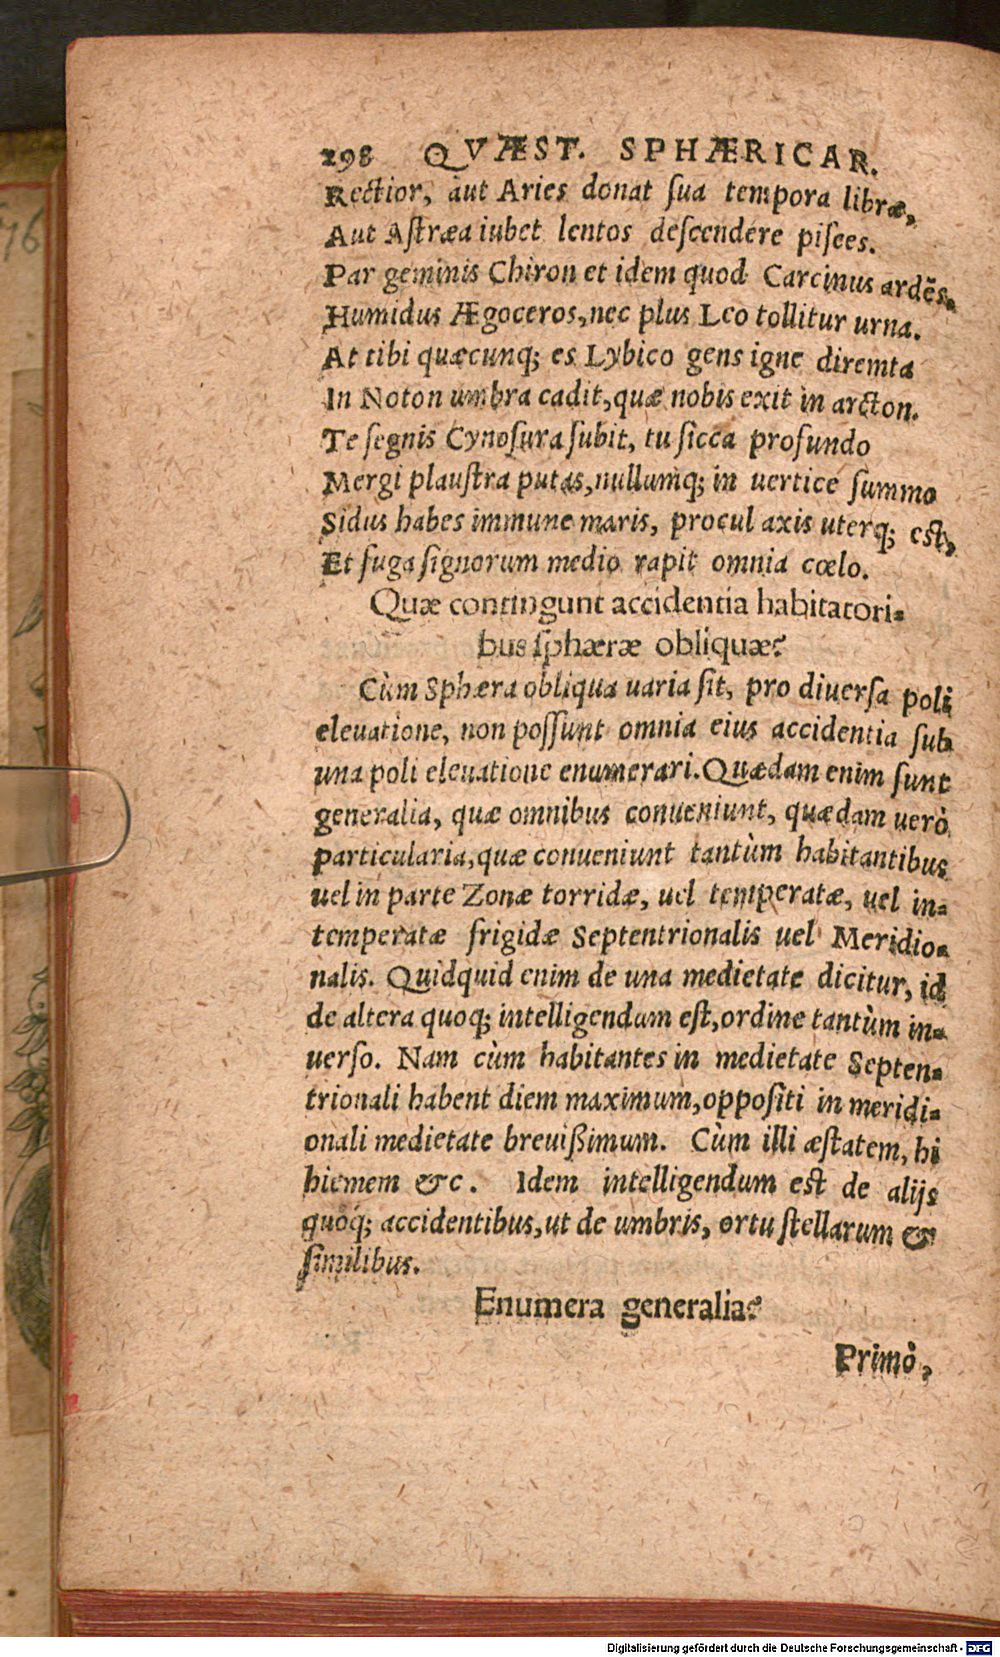 298 QVÆST. SPHÆRICAR.
Rectior, aut Aries donat sua tempora libræ,
Aut Astræa iubet lentos descendere pisces.
Par geminis Chiron et idem quod Carcinus ardẽs.
Humidus Ægoceros, nec plus Leo tollitur urna.
At tibi quæcunq; es Lybico gens igne diremta
In Noton umbra cadit, quæ nobis exit in arcton.
Te segnis Cynosura subit, tu sicca profundo
Mergi plaustra putas, nullumq; in uertice summo
Sidus habes immune maris, procul axis uterq; est,
Et fuga signorum medio rapit omnia cœlo.
Quæ contingunt accidentia habitatori-
bus sphæræ obliquæ?
Cùm Sphæra obliqua uaria sit, pro diuersa poli
eleuatione, non possunt omnia eius accidentia sub
una poli eleuatione enumerari. Quædam enim sunt
generalia, quæ omnibus conueniunt, quædam uerò
particularia, quæ conueniunt tantùm habitantibus
uel in parte Zonæ torridæ, uel temperatæ, uel in-
temperatæ frigidæ Septentrionalis uel Meridio-
nalis. Quidquid enim de una medietate dicitur, id
de altera quoq; intelligendum est, ordine tantùm in-
uerso. Nam cùm habitantes in medietate Septen-
trionali habent diem maximum, oppositi in meridi-
onali medietate breuißimum. Cùm illi æstatem, hi
hiemem &c. Idem intelligendum est de alijs
quoq́; accidentibus, ut de umbris, ortu stellarum &
similibus.
Enumera generalia?
Primò,
Digitalisierung gefördert durch die Deutsche Forschungsgemeinschaft - DFG